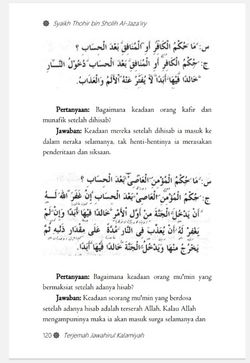 Syaikh Thohir bin Sholih Al-Jaza'iry
س: مَا حُكْمُ الْكَافِرِ أَوِ الْمُنَافِقِ بَعْدَ الْحِسَابِ ؟
ج: حُكْمُ الْكَافِرِ أَوِ الْمُنَافِقِ بَعْدَ الْحِسَابِ دُخُوْلُ النَّارِ
خَالِدًا فِيْهَا أَبَدًا لَا يُفَتَّرُ عَنْهُ الْأَلَمُ وَالْعَذَابُ.
Pertanyaan: Bagaimana keadaan orang kafir dan
munafik setelah dihisab?
Jawaban: Keadaan mereka setelah dihisab ia masuk ke
dalam neraka selamanya, tak henti-hentinya is merasakan
penderitaan dan siksaan.
س: مَا حُكْمُ الْمُؤْمِنِ الْعَاصِيْ بَعْدَ الْحِسَابِ ؟
ج: حُكْمُ الْمُؤْمِنِ الْعَاصِيْ بَعْدَ الْحِسَابِ إِنْ غَفَرَ اللهُ لَـهُ
أَنْ يَدْخُلَ الْجَنَّةَ مِنْ أَوَّلِ الْأَمْرِ خَالِدًا فِيْهَا أَبَدًا وَإِنْ لَمْ
يَغْفِرْ لَهُ أَنْ يُعَذَّبَ فِي النَّارِ مُدَّةً عَلَى مِقْدَارِ ذَنْبِهِ ثُمَّ
يَخْرُجَ مِنْهَا وَيَدْخُلَ الْجَنَّةَ خَالِدًا فِيْهَا أَبَدًا.
Pertanyaan: Bagaimana keadaan orang mu'min yang
bermaksiat setelah adanya hisab?
Jawaban: Keadaan seorang mu'min yang berdosa
setelah adanya hisab adalah terserah Allah. Kalau Allah
mengampuninya maka ia akan masuk surga selamanya dan
120 Terjemah Jawahirul Kalamiyah